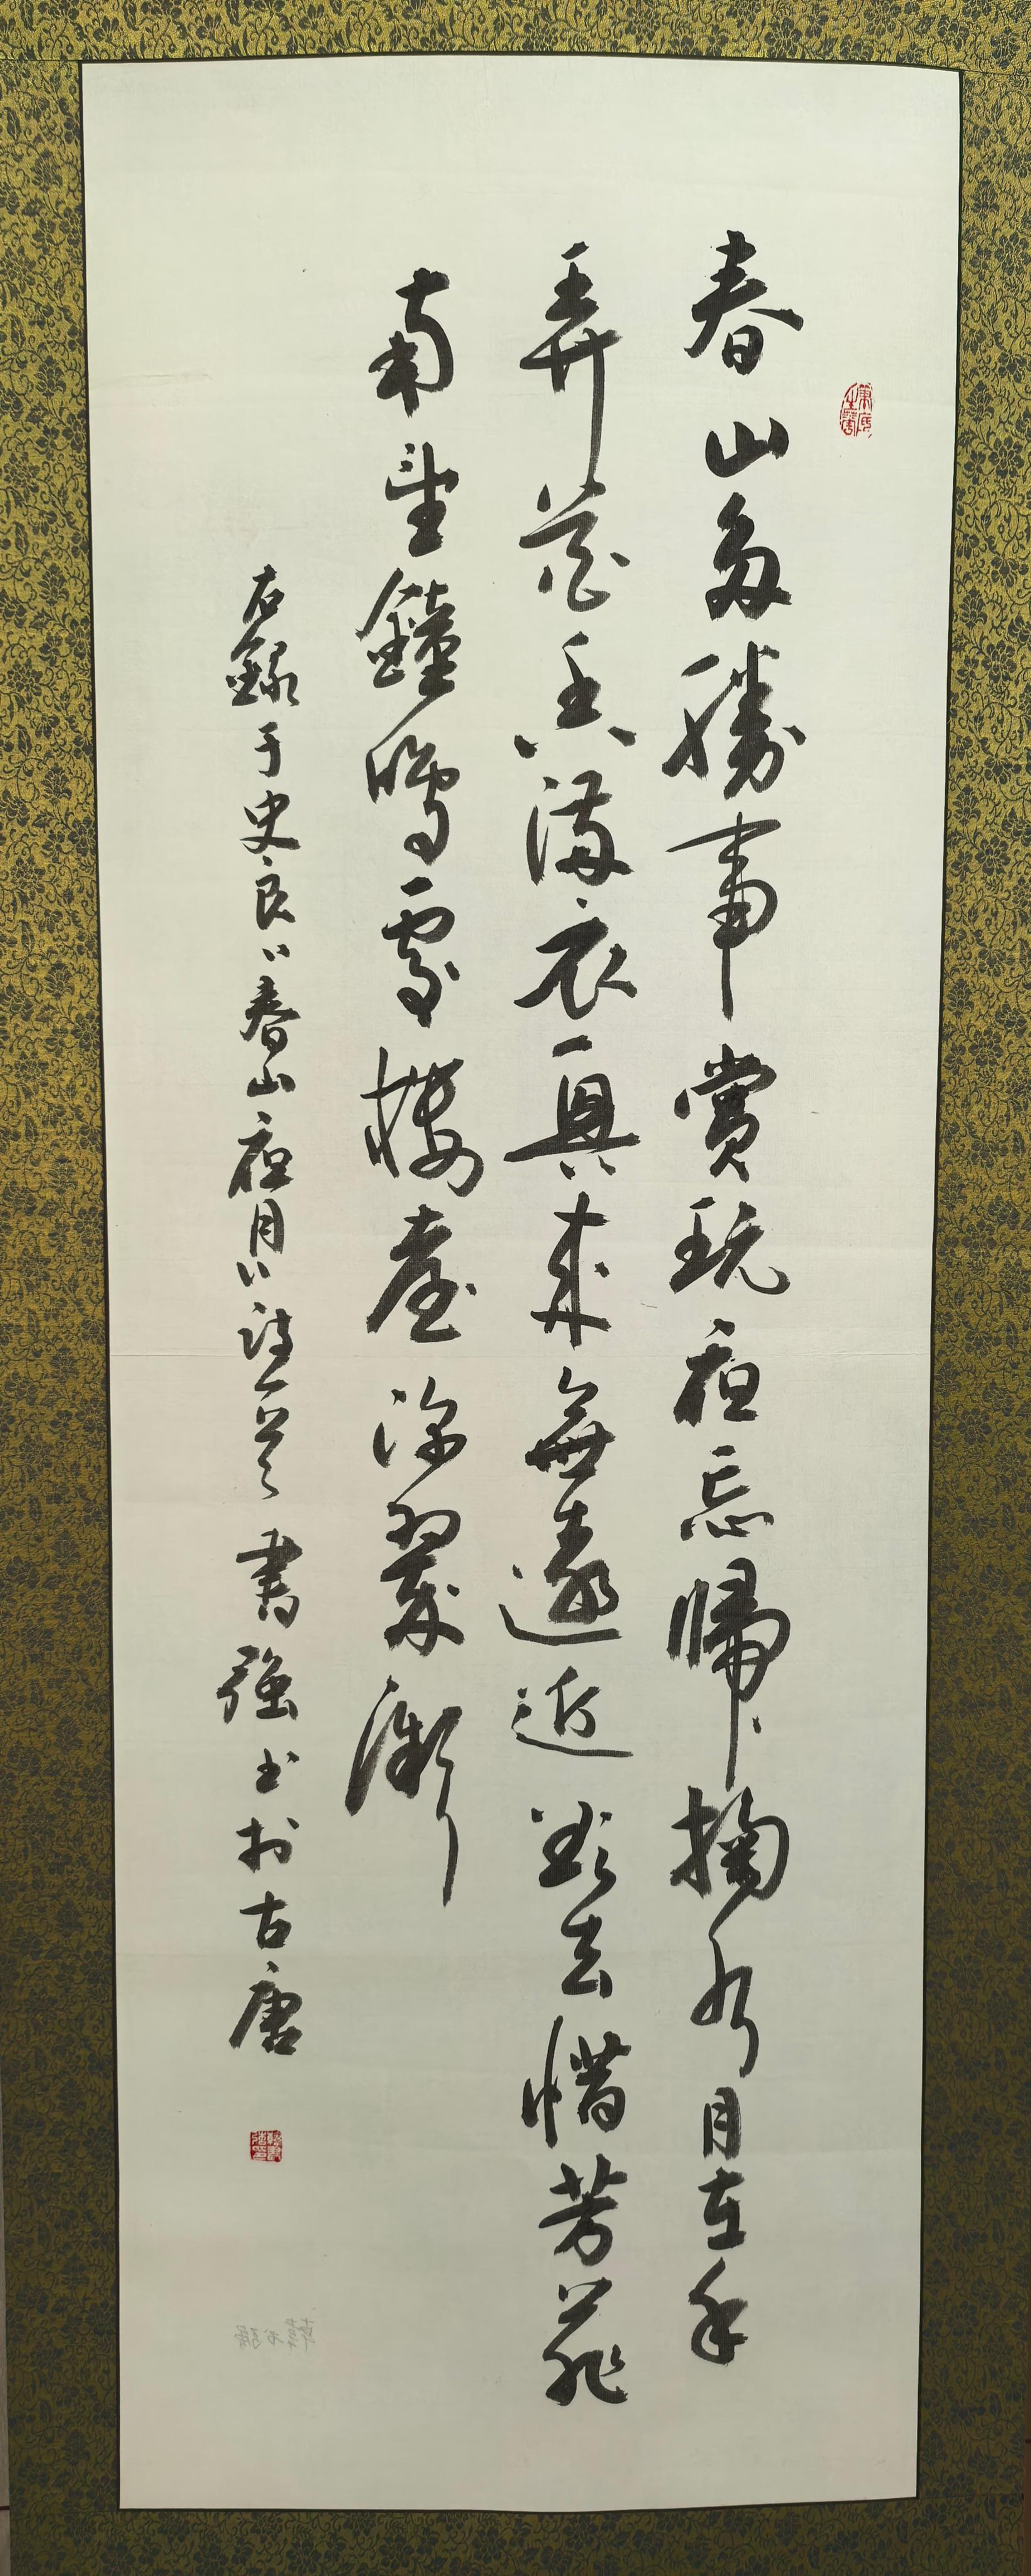 春山多勝事賞玩夜忘歸掬水月在手
弄花香滿衣興來無遠近欲去惜芳菲
南望鐘鳴處樓臺深翠微
右録于史良春山夜月詩一首 書強書於古唐